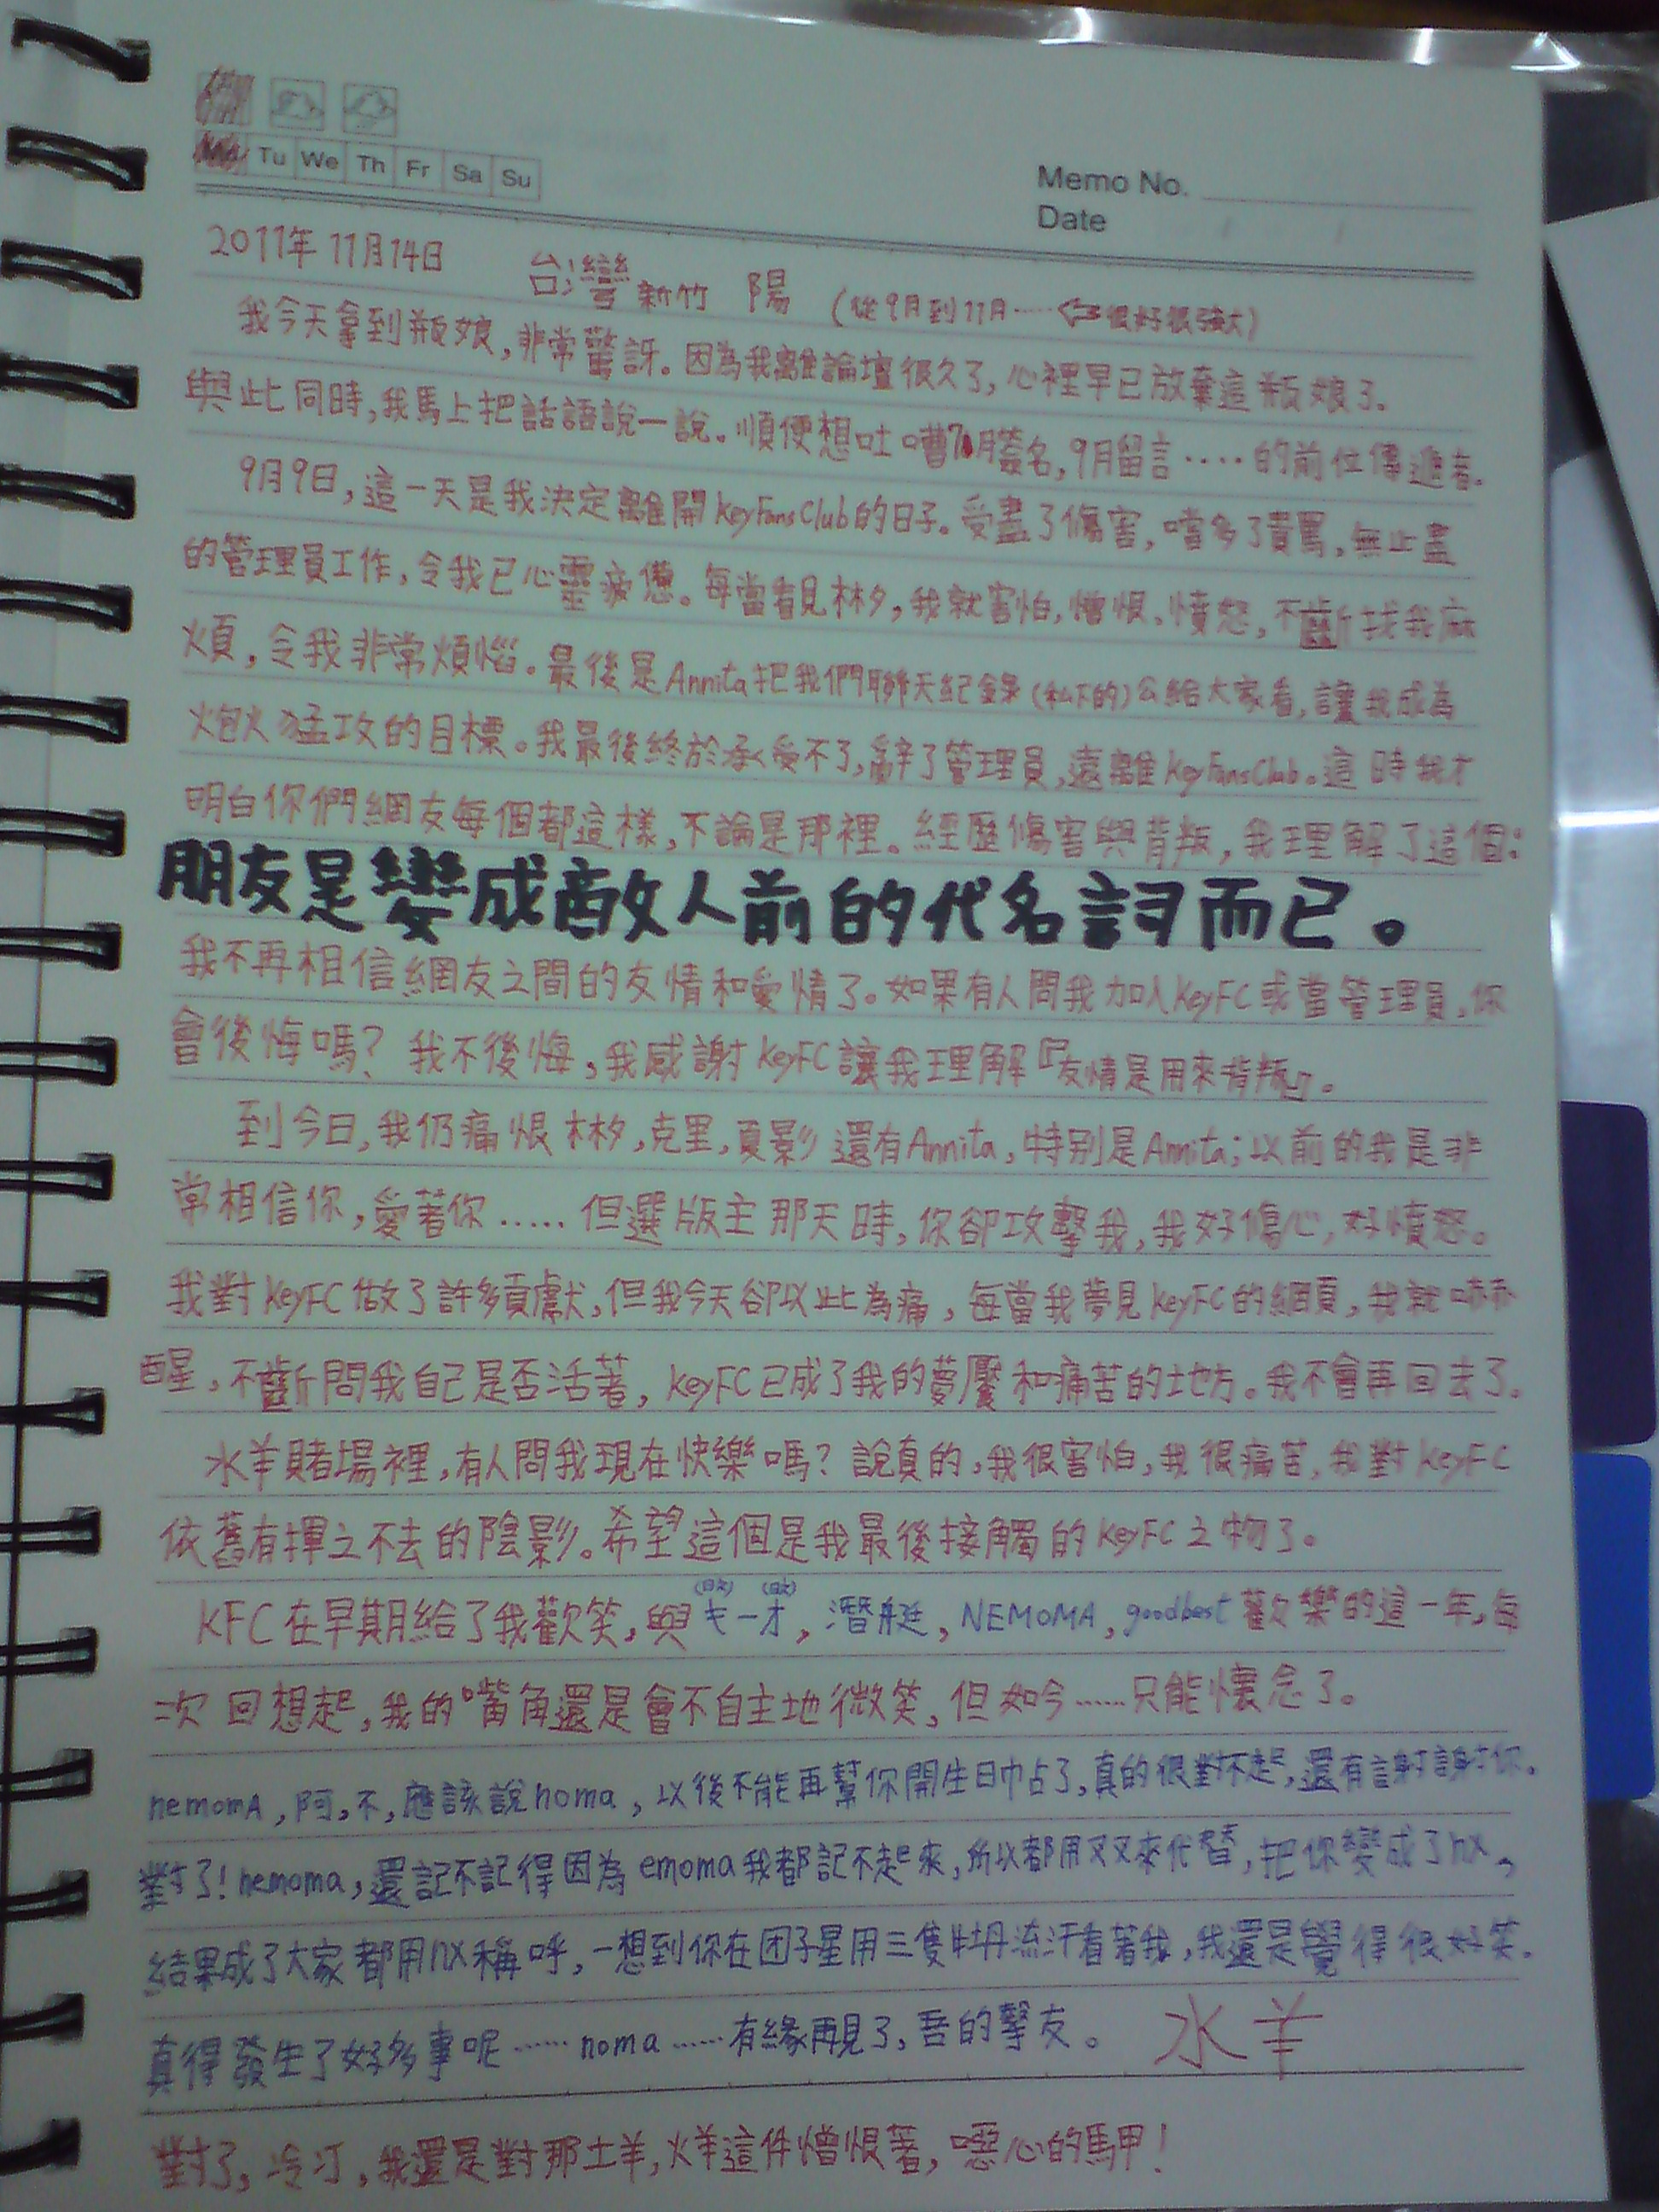 Mo Tu We Th Fr Sa Su
Memo No.
Date
2011年11月14日 台灣新竹 陽 (從9月到11月…… 很好很強大)
我今天拿到瓶娘,非常驚訝。因為我離論壇很久了,心裡早已放棄這瓶娘了。
與此同時,我馬上把話語說一說。順便想吐嘈7月簽名,9月留言……的前位傳遞者。
9月9日,這一天是我決定離開KeyFansClub的日子。受盡了傷害,嚐多了責罵,無止盡
的管理員工作,令我已心靈疲憊。每當看見林夕,我就害怕,憎恨、憤怒,不斷找我麻
煩,令我非常煩惱。最後是Annita把我們聊天紀錄(私下的)公給大家看,讓我成為
炮火猛攻的目標。我最後終於承受不了,辭了管理員,遠離KeyFansClub。這時我才
明白你們網友每個都這樣,不論是那裡。經歷傷害與背叛,我理解了這個:
朋友是變成敵人前的代名詞而已。
我不再相信網友之間的友情和愛情了。如果有人問我加入KeyFC或當管理員,你
會後悔嗎?我不後悔,我感謝KeyFC讓我理解『友情是用來背叛』。
到今日,我仍痛恨林夕,克里,頁影還有Annita,特別是Annita;以前的我是非
常相信你,愛著你……但選版主那天時,你卻攻擊我,我好傷心,好憤怒。
我對KeyFC做了許多貢獻,但我今天卻以此為痛,每當我夢見KeyFC的網頁,我就嚇
醒,不斷問我自己是否活著,KeyFC已成了我的夢魘和痛苦的地方。我不會再回去了。
水羊賭場裡,有人問我現在快樂嗎?說真的,我很害怕,我很痛苦,我對KeyFC
依舊有揮之不去的陰影。希望這個是我最後接觸的KeyFC之物了。
(日文) (日文)
KFC在早期給了我歡笑,與キーオ,潛艇,NEMOMA,goodbest歡樂的這一年,每
次回想起,我的嘴角還是會不自主地微笑,但如今……只能懷念了。
nemomA,阿,不,應該說noma,以後不能再幫你開生日帖了,真的很對不起,還有謝謝你。
對了!nemoma,還記不記得因為emoma我都記不起來,所以都用叉叉來代替,把你變成了nx,
結果成了大家都用nx稱呼,一想到你在团子星用三隻牡丹流汗看著我,我還是覺得很好笑。
真得發生了好多事呢……noma……有緣再見了,吾的摯友。 水羊
對了,冷汀,我還是對那土羊,火羊這件憎恨著,噁心的馬甲!